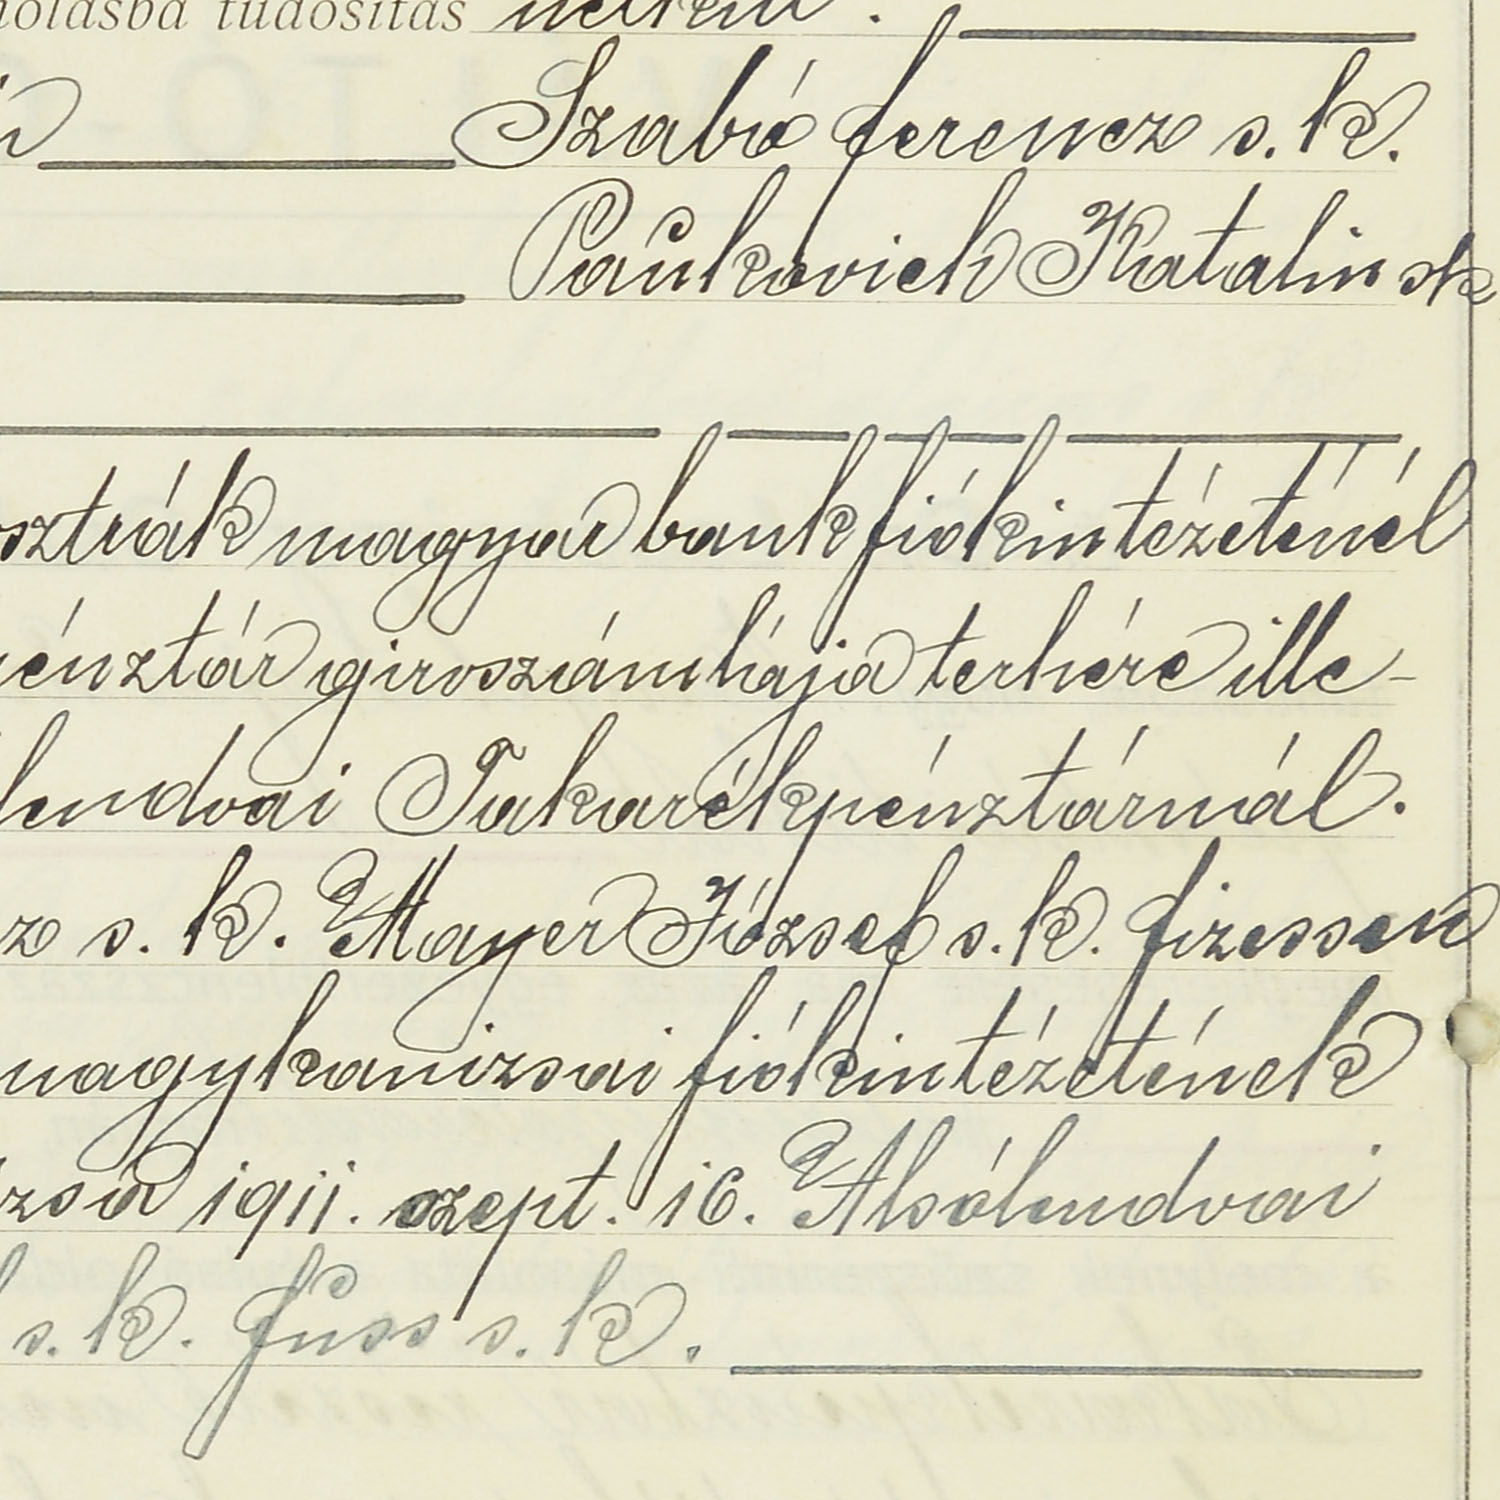 holásba tudósitás nélkül.
Szabó ferencz s. k.
Paukovich Katalin sk
osztrák magyar bank fiókintézeténél
pénztár giroszámlája terhére ille-
lendvai Takarékpénztárnál.
z s. k. Mayer József s. k. fizessen
nagykanizsai fiókintézetének
zsa 1911. szept. 16. Alsólendvai
s. k. fuss s. k.